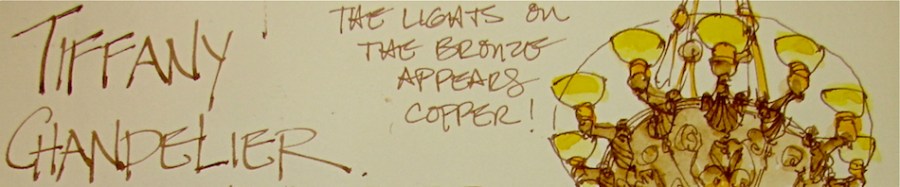 TIFFANY
CHANDELIER.
THE LIGHTS ON
THE BRONZE
APPEARS
COPPER!